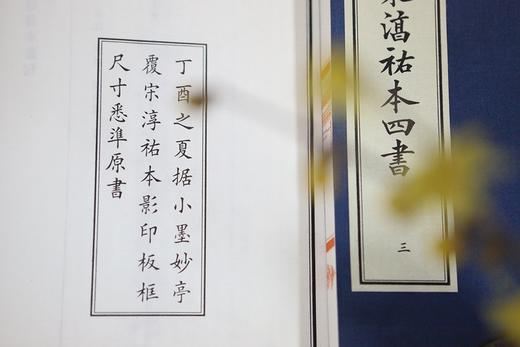 湻祐本四書
三
丁酉之夏据小墨妙亭
覆宋淳祐本影印板框
尺寸悉準原書